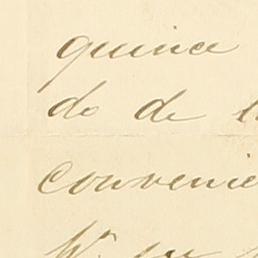 quince
do de
convenie